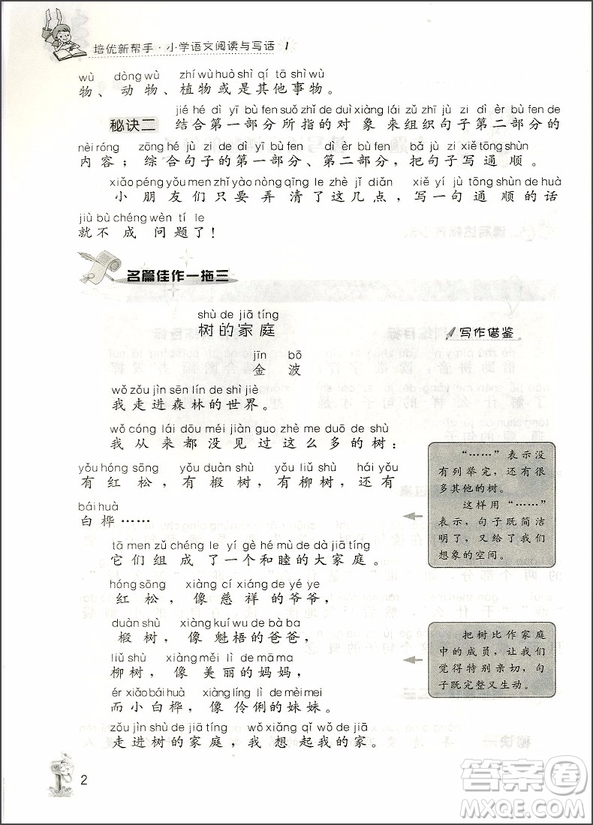 培优新帮手·小学语文阅读与写话 1
wù dòng wù zhí wù huò shì qí tā shì wù
物、动物、植物或是其他事物。
jié hé dì yī bù fen suǒ zhǐ de duì xiàng lái zǔ zhī jù zi dì èr bù fen
秘诀二 结合第一部分所指的对象来组织句子第二部分的
nèi róng zōng hé jù zi de dì yī bù fen dì èr bù fen bǎ jù zi xiě tōng shùn
内容；综合句子的第一部分、第二部分，把句子写通顺。
xiǎo péng yǒu men zhǐ yào nòng qīng le zhè jǐ diǎn xiě yí jù tōng shùn de huà
小朋友们只要弄清了这几点，写一句通顺的话
jiù bù chéng wèn tí le
就不成问题了！
名篇佳作一拖三
shù de jiā tíng
树的家庭
写作借鉴
jīn bō
金波
wǒ zǒu jìn sēn lín de shì jiè
我走进森林的世界。
wǒ cóng lái dōu méi jiàn guo zhè me duō de shù
我从来都没见过这么多的树：
yǒu hóng sōng yǒu duàn shù yǒu liǔ shù hái yǒu
有红松，有椴树，有柳树，还有
bái huà
白桦……
“……”表示没
有列举完，还有很
多其他的树。
这样用“……”
表示，句子既简洁
明了，又给了我们
想象的空间。
tā men zǔ chéng le yí gè hé mù de dà jiā tíng
它们组成了一个和睦的大家庭。
hóng sōng xiàng cí xiáng de yé ye
红松，像慈祥的爷爷，
duàn shù xiàng kuí wu de bà ba
椴树，像魁梧的爸爸，
liǔ shù xiàng měi lì de mā ma
柳树，像美丽的妈妈，
ér xiǎo bái huà xiàng líng lì de mèi mei
而小白桦，像伶俐的妹妹。
把树比作家庭
中的成员，让我们
觉得特别亲切，句
子既完整又生动。
zǒu jìn shù de jiā tíng wǒ xiǎng qǐ wǒ de jiā
走进树的家庭，我想起我的家。
2
答案圈
MXQE.COM